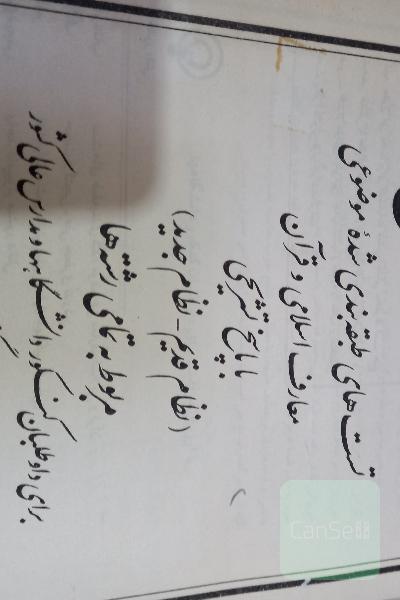 تست های طبقه بندی شدهٔ موضوعی
معارف اسلامی و قرآن
با پاسخ تشریحی
(نظام قدیم - نظام جدید)
مربوط به تمامی رشته ها
برای داوطلبان کنکور دانشگاهها و مدارس عالی کشور
CanSell